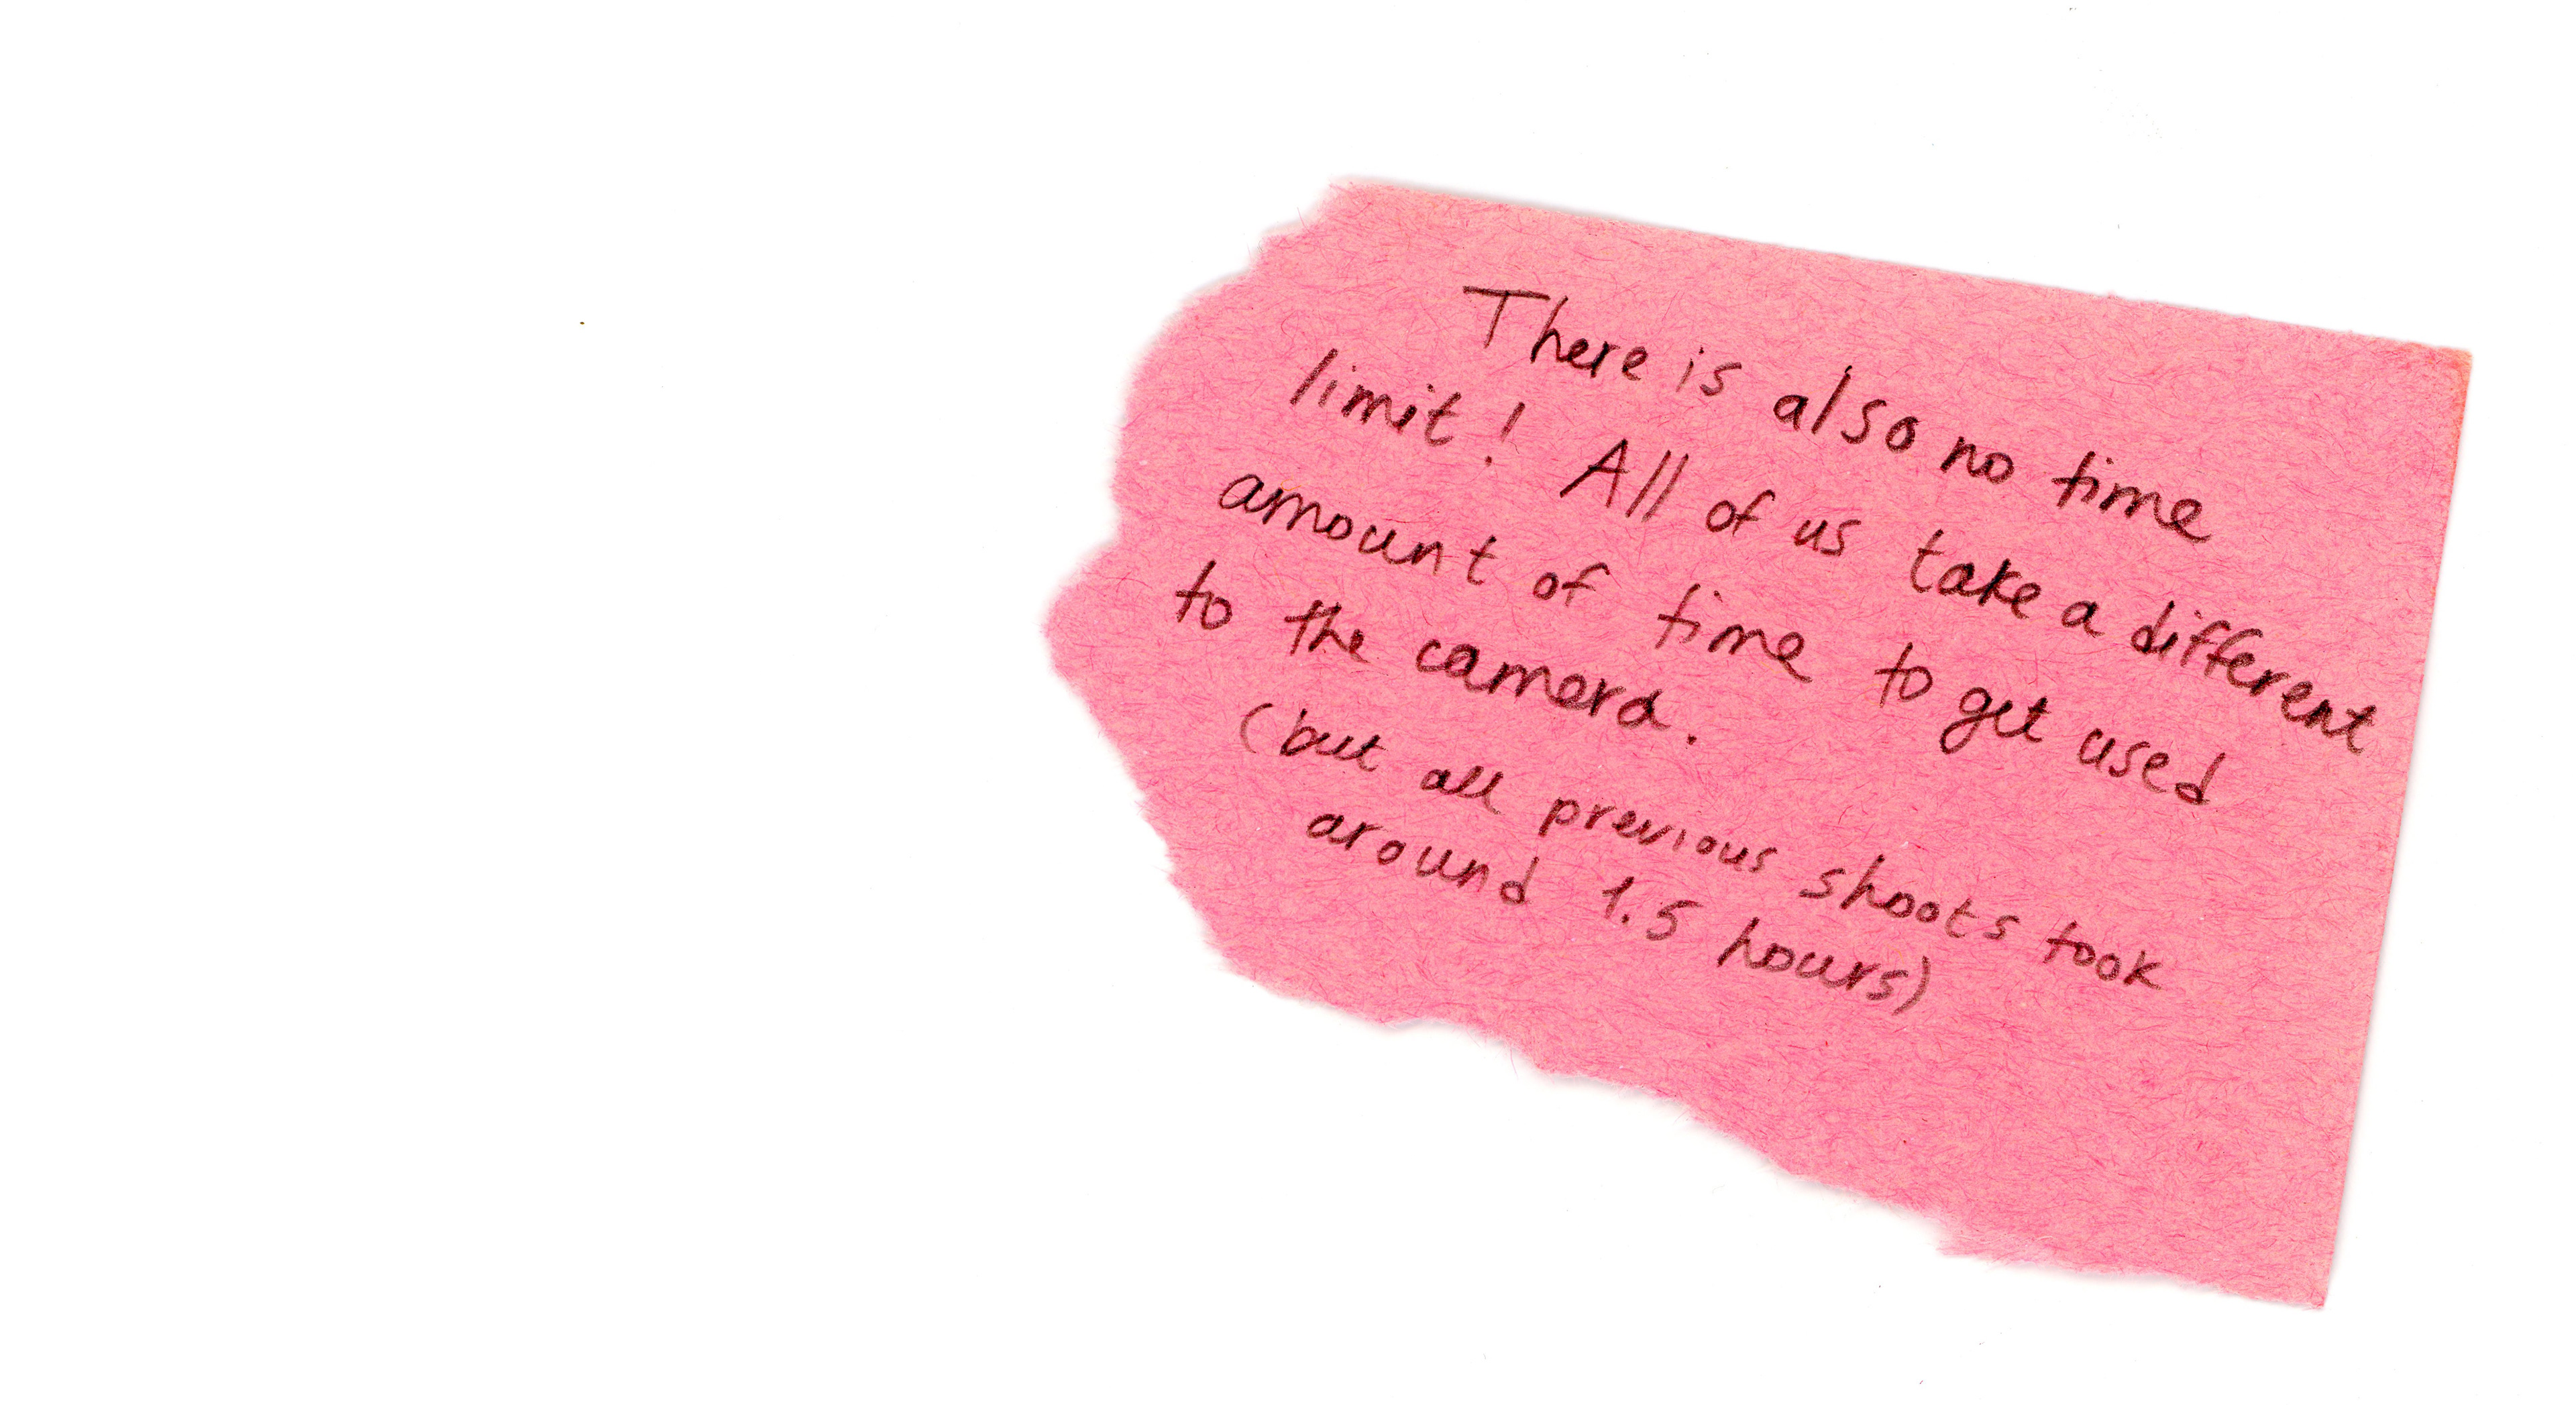 There is also no time
limit! All of us take a different
amount of time to get used
to the camera.
(but all previous shoots took
around 1.5 hours)